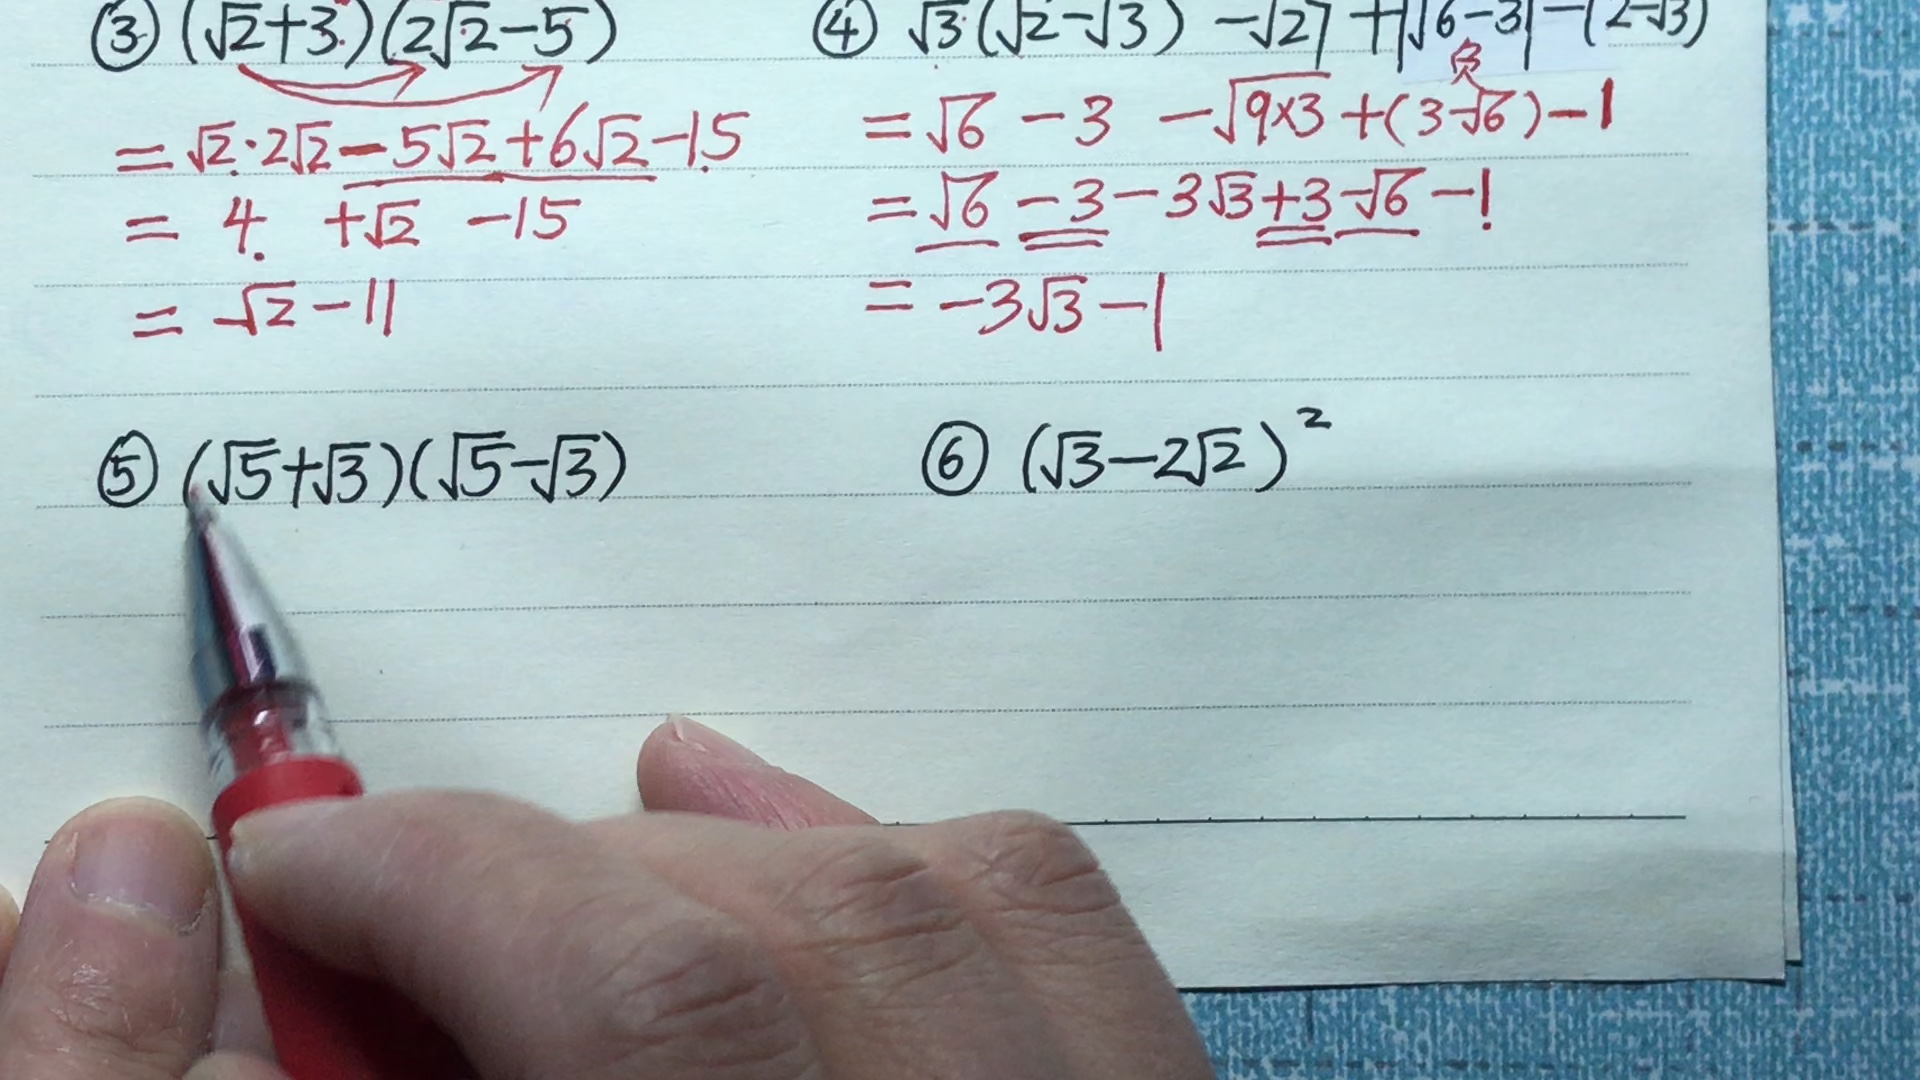 ③ (√2+3)(2√2-5)
=√2·2√2-5√2+6√2-15
= 4 +√2 -15
= √2-11
④ √3(√2-√3) -√27 +|√6-3| -(2-√3)
负
=√6 -3 -√(9×3) +(3-√6)-1
=√6 -3 -3√3 +3 -√6 -1
= -3√3 -1
⑤ (√5+√3)(√5-√3)
⑥ (√3-2√2)²